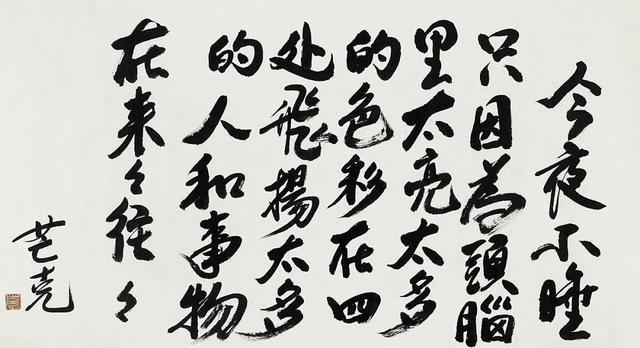 今夜不睡
只因為頭腦
里太亮太多
的色彩在四
处飛揚太多
的人和事物
在来々往々
芒克